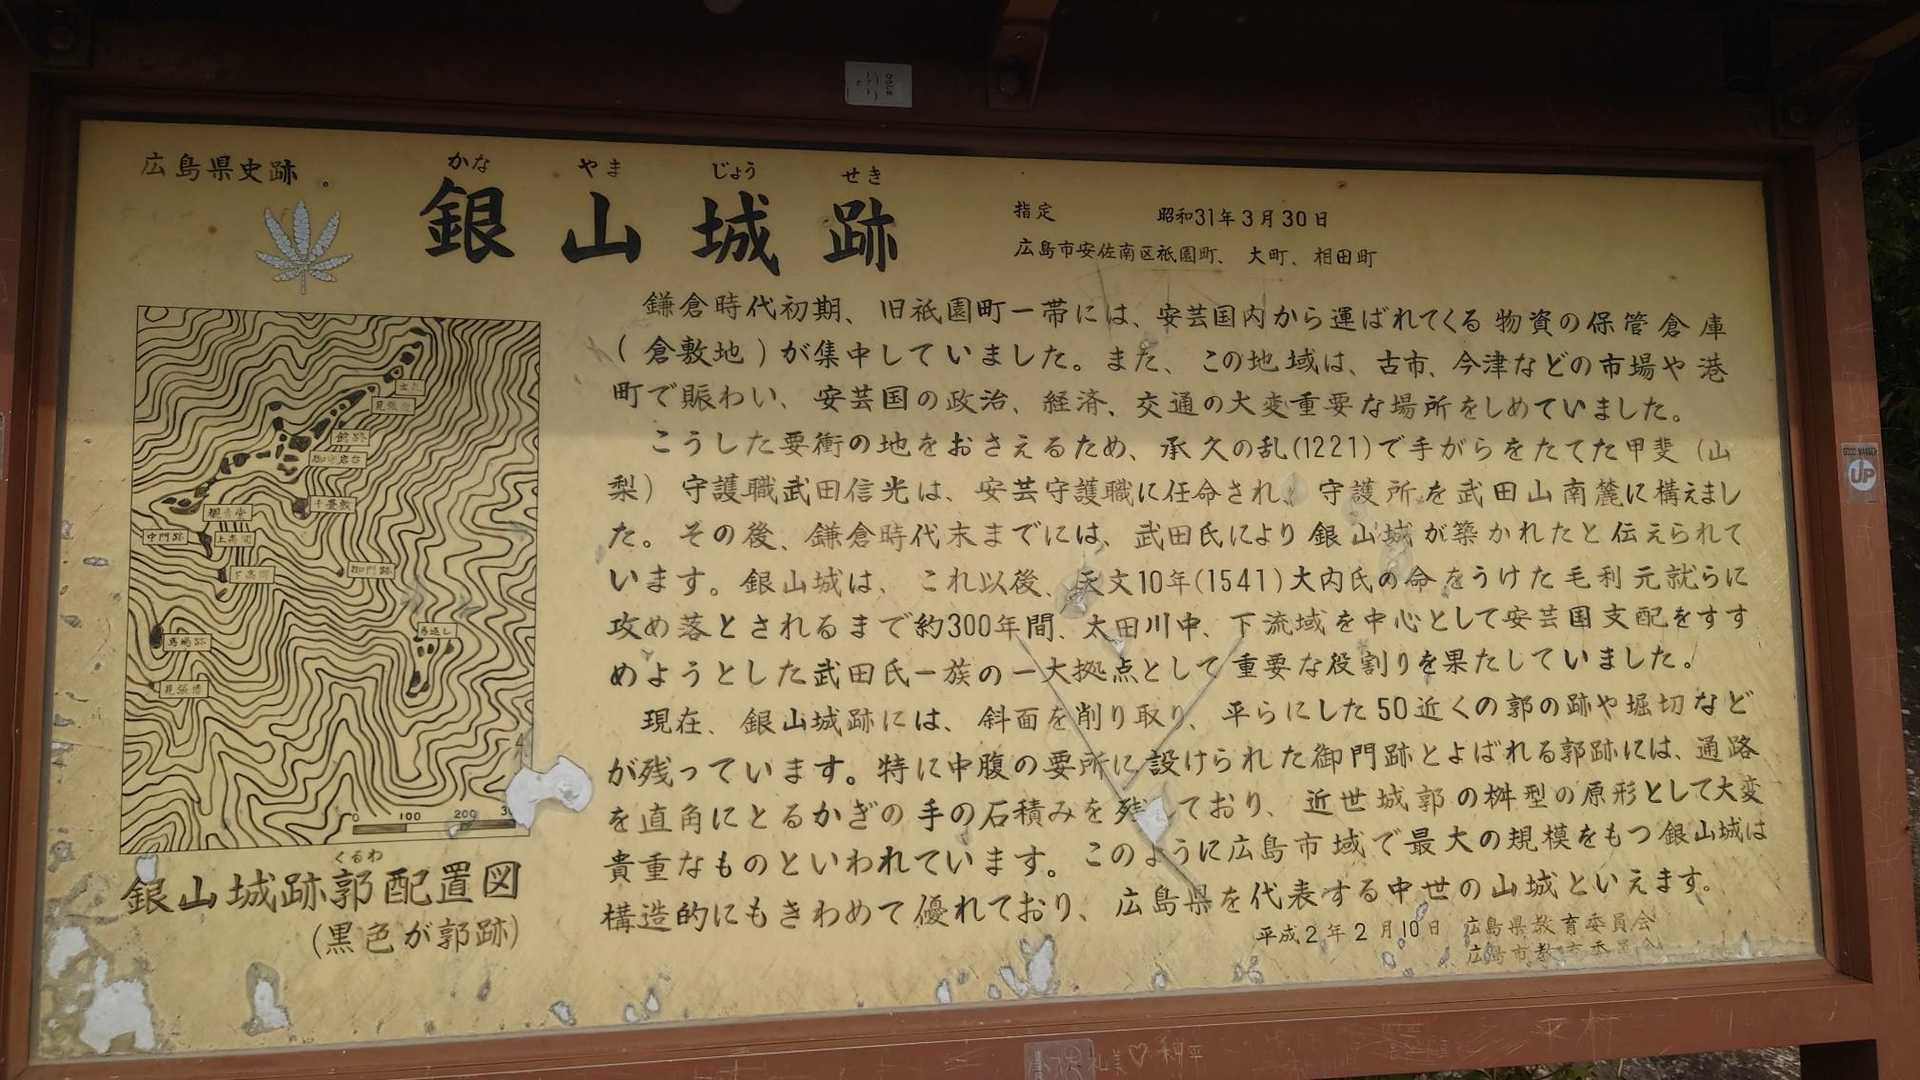 広島県史跡
かな やま じょう せき
銀山城跡
指定 昭和31年3月30日
広島市安佐南区祇園町、大町、相田町
鎌倉時代初期、旧祇園町一帯には、安芸国内から運ばれてくる物資の保管倉庫
(倉敷地)が集中していました。また、この地域は、古市、今津などの市場や港
町で賑わい、安芸国の政治、経済、交通の大変重要な場所をしめていました。
こうした要衝の地をおさえるため、承久の乱(1221)で手がらをたてた甲斐(山
梨)守護職武田信光は、安芸守護職に任命され、守護所を武田山南麓に構えまし
た。その後、鎌倉時代末までには、武田氏により銀山城が築かれたと伝えられて
います。銀山城は、これ以後、天文10年(1541)大内氏の命をうけた毛利元就らに
攻め落とされるまで約300年間、太田川中、下流域を中心として安芸国支配をすす
めようとした武田氏一族の一大拠点として重要な役割りを果たしていました。
現在、銀山城跡には、斜面を削り取り、平らにした50近くの郭の跡や堀切など
が残っています。特に中腹の要所に設けられた御門跡とよばれる郭跡には、通路
を直角にとるかぎの手の石積みを残しており、近世城郭の桝型の原形として大変
貴重なものといわれています。このように広島市域で最大の規模をもつ銀山城は
構造的にもきわめて優れており、広島県を代表する中世の山城といえます。
平成2年2月10日 広島県教育委員会
広島市教育委員会
見張台
館跡
御守岩台
千畳敷
観音堂
中門跡
上高間
下高間
御門跡
馬場跡
馬返し
見張台
0 100 200
くるわ
銀山城跡郭配置図
(黒色が郭跡)
UP